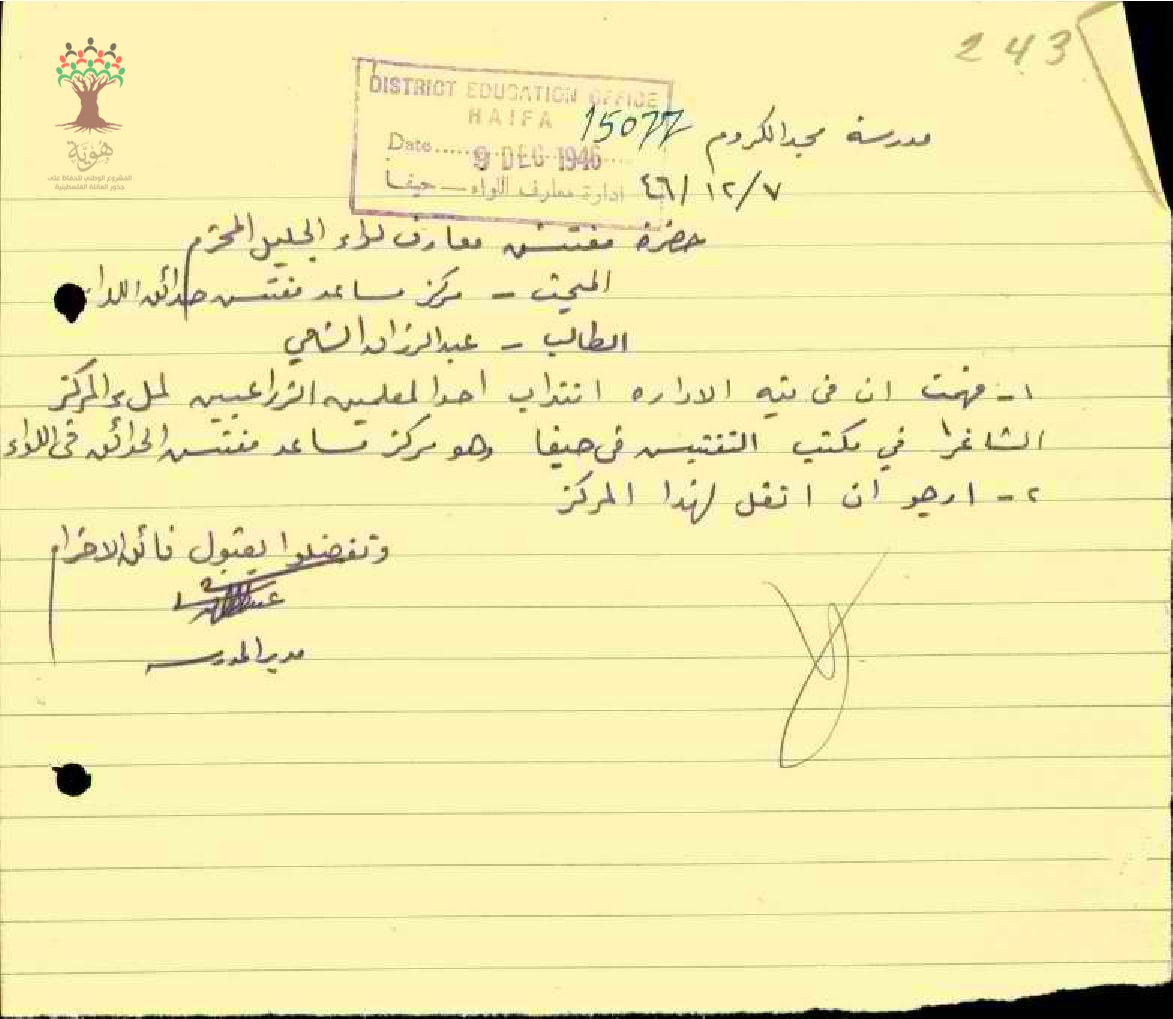 243
هوية
المشروع الوطني للحفاظ على
جذور العائلة الفلسطينية
DISTRICT EDUCATION OFFICE
HAIFA
Date 9 DEC 1946
ادارة معارف اللواء — حيفا
15077
مدرسة مجد الكروم
٤٦/١٢/٧
حضرة مفتش معارف لواء الجليل المحترم
المبحث - مركز مساعد مفتش حدائق اللواء
الطالب - عبد الرزاق الشامي
١- فهمت ان في نيه الاداره انتداب احد المعلمين الزراعيين لملء المركز
الشاغر في مكتب التفتيش في حيفا وهو مركز مساعد مفتش الحدائق في اللواء
٢- ارجو ان انقل لهذا المركز
وتفضلوا بقبول فائق الاحترام
مدير المدرسه